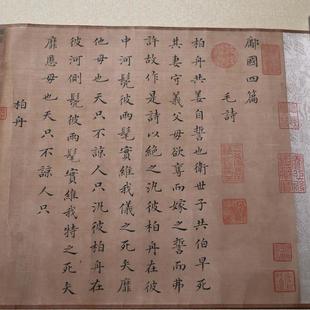 鄘國四篇
毛詩
柏舟共姜自誓也衛世子共伯早死
其妻守義父母欲奪而嫁之誓而弗
許故作是詩以絶之汎彼柏舟在彼
中河髧彼兩髦實維我儀之死矢靡
他母也天只不諒人只汎彼柏舟在
彼河側髧彼兩髦實維我特之死矢
靡慝母也天只不諒人只
柏舟